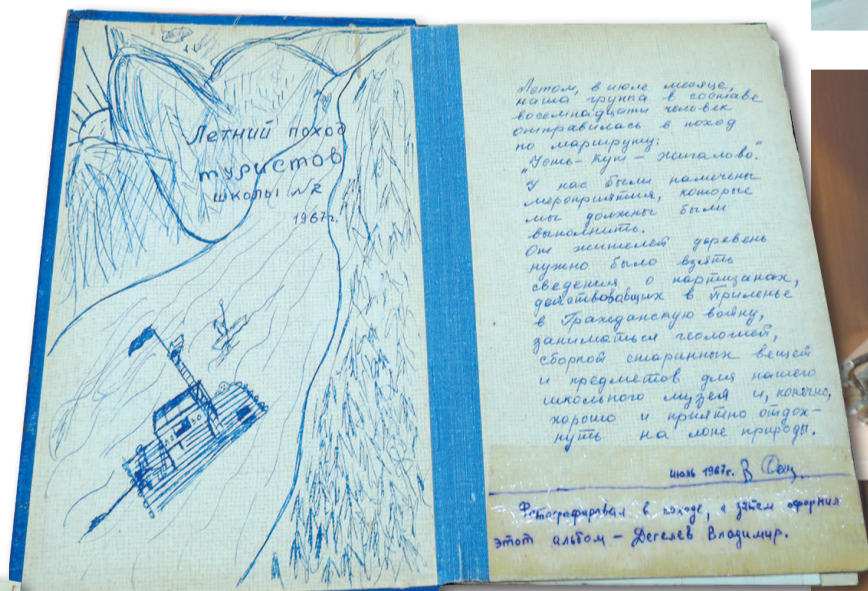 Летний поход
туристов
школы №2
1967г.
Летом, в июле месяце,
наша группа в составе
восемнадцати человек
отправилась в поход
по маршруту:
"Усть-Кут – Жигалово".
У нас были намечены
мероприятия, которые
мы должны были
выполнить.
От жителей деревень
нужно было взять
сведения о партизанах,
действовавших в Приленье
в Гражданскую войну,
заниматься геологией,
сборкой старинных вещей
и предметов для нашего
школьного музея и, конечно,
хорошо и приятно отдох-
нуть на лоне природы.
июль 1967г. В
Фотографировал в походе, а затем оформил
этот альбом – Дегелев Владимир.